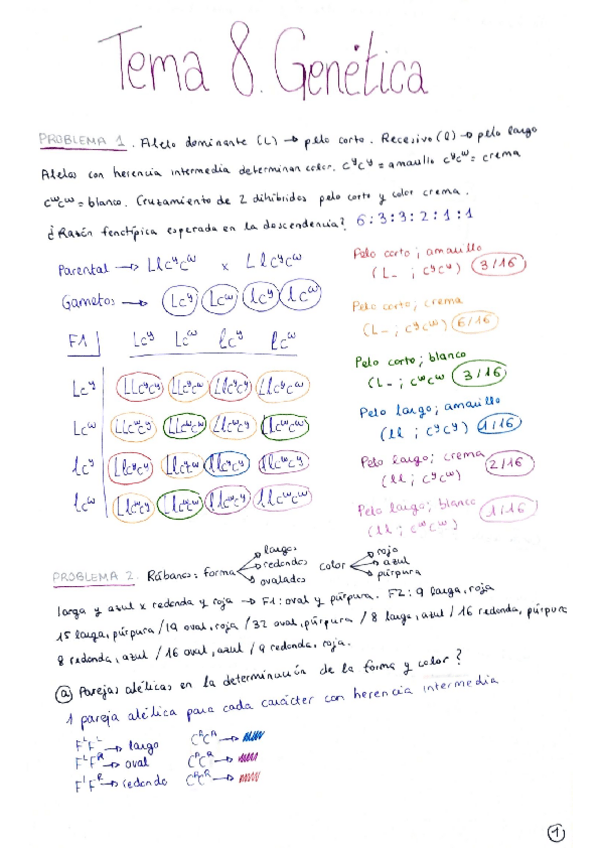 Tema 8. Genética
PROBLEMA 1. Alelo dominante (L) → pelo corto. Recesivo (l) → pelo largo
Alelos con herencia intermedia determinan color. CʸCʸ = amarillo CʸCʷ = crema
CʷCʷ = blanco. Cruzamiento de 2 dihíbridos pelo corto y color crema.
¿Razón fenotípica esperada en la descendencia? 6:3:3:2:1:1
Parental → LlCʸCʷ x LlCʸCʷ
Gametos → LCʸ LCʷ lCʸ lCʷ
F1 LCʸ LCʷ lCʸ lCʷ
LCʸ LLCʸCʸ LLCʸCʷ LlCʸCʸ LlCʸCʷ
LCʷ LLCʷCʸ LLCʷCʷ LlCʷCʸ LlCʷCʷ
lCʸ LlCʸCʸ LlCʸCʷ llCʸCʸ
lCʷ LlCʷCʸ LlCʷCʷ llCʷCʸ llCʷCʷ
Pelo corto; amarillo
(L_ ; CʸCʸ) 3/16
Pelo corto; crema
(L-; CʸCʷ) 6/16
Pelo corto; blanco
(L-; CʷCʷ 3/16
Pelo largo; amarillo
(ll ; CʸCʸ) 1/16
Pelo largo; crema
(ll; CʸCʷ) 2/16
Pelo largo; blanco
(ll ; CʷCʷ) 1/16
PROBLEMA 2. Rábanos: forma largos redondos ovalados color rojo azul púrpura
larga y azul x redonda y roja → F1: oval y púrpura. F2: 9 larga, roja
15 larga, púrpura / 19 oval, roja / 32 oval, púrpura / 8 larga, azul / 16 redonda, púrpura
8 redonda, azul / 16 oval, azul / 9 redonda, roja.
a) Parejas alélicas en la determinación de la forma y color?
1 pareja alélica para cada carácter con herencia intermedia
→ largo
→ oval
→ redondo
1